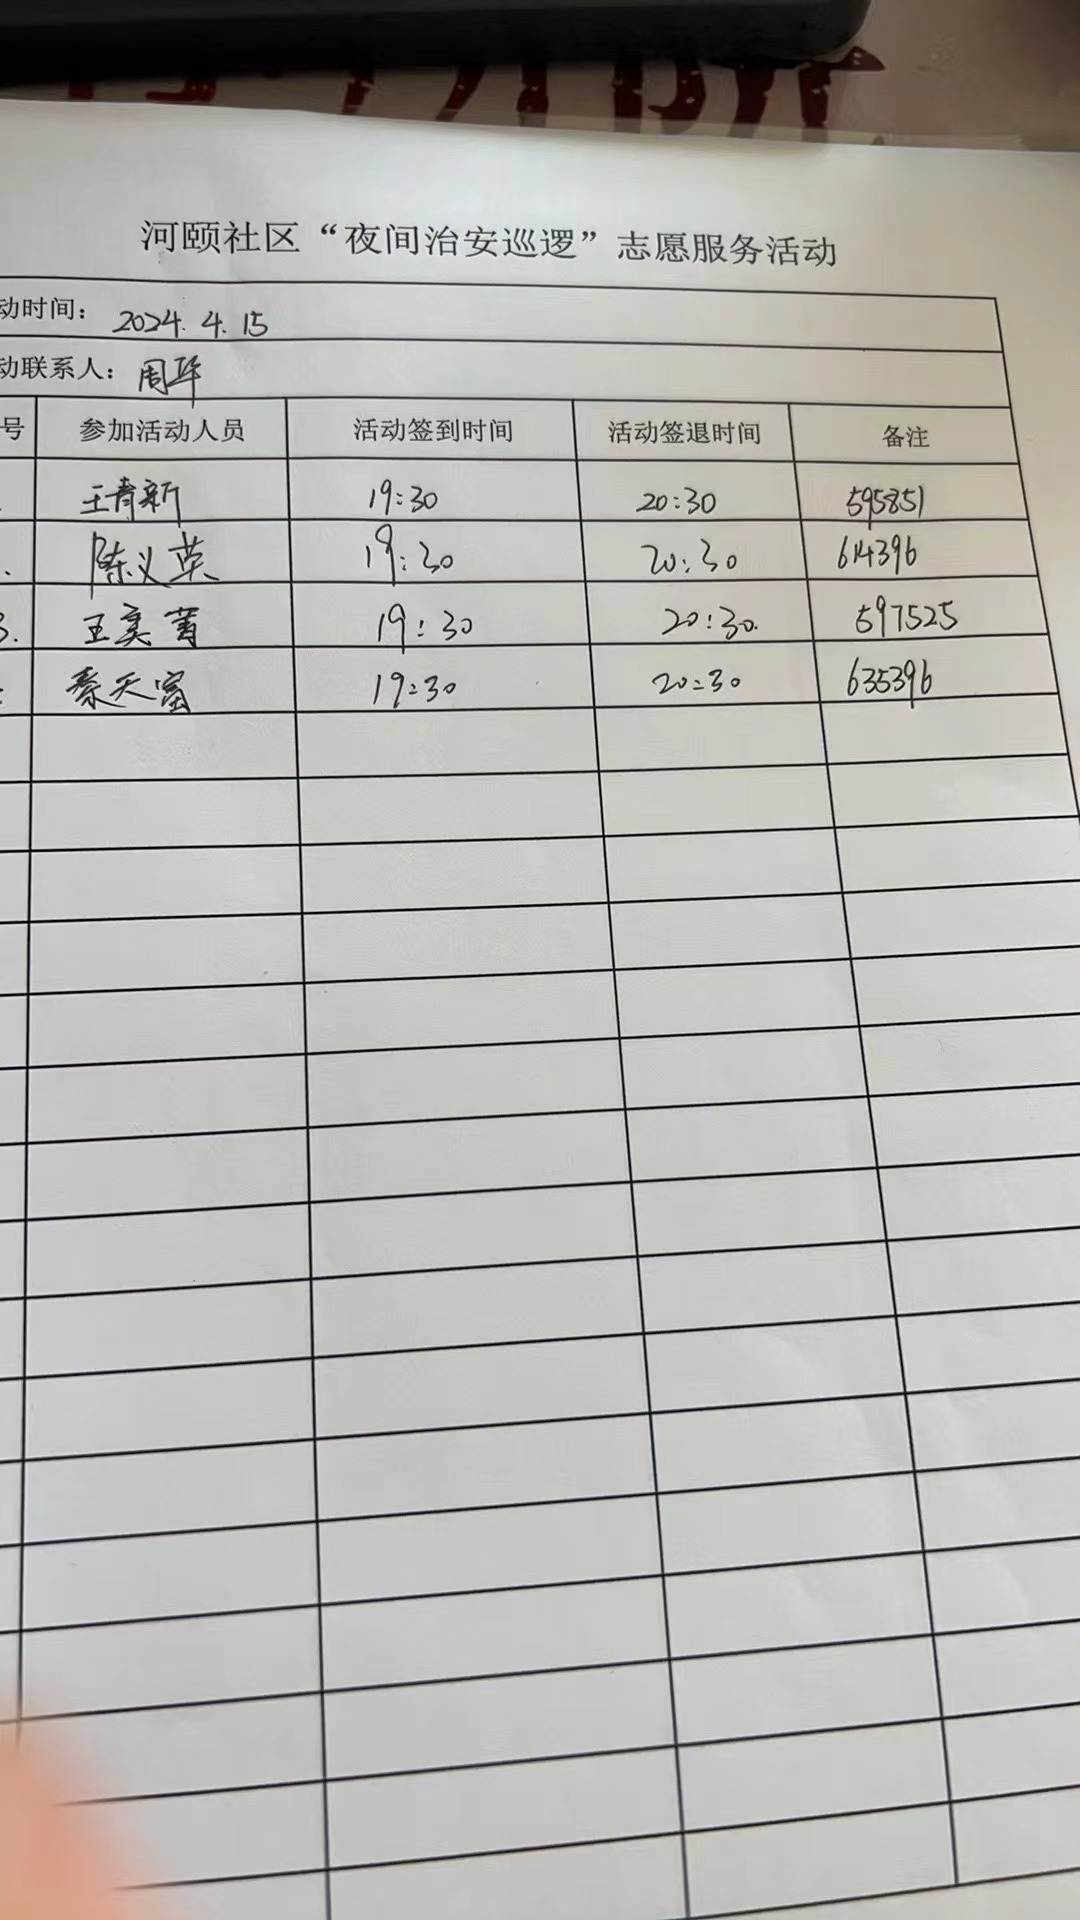 河颐社区“夜间治安巡逻”志愿服务活动
动时间： 2024.4.15
动联系人： 周华
号 参加活动人员 活动签到时间 活动签退时间 备注
王青新 19:30 20:30 595851
陈义英 19:30 20:30 614396
3. 王奕菁 19:30 20:30. 597525
秦天富 19:30 20:30 635396